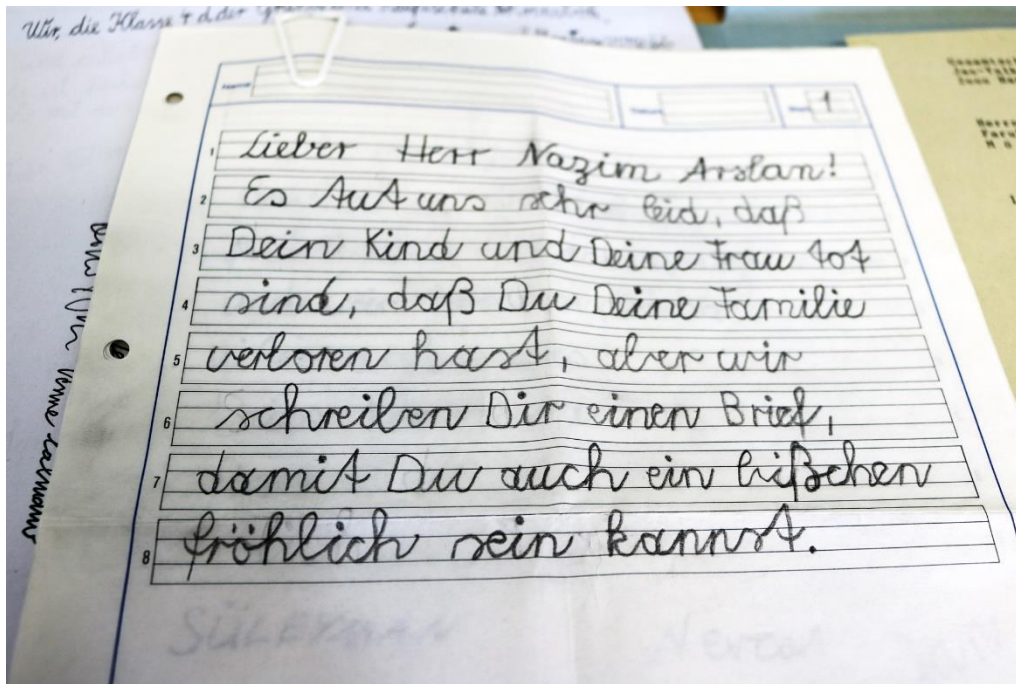 Wir, die Klasse 4d der
1
1 Lieber Herr Nazim Arslan!
2 Es tut uns sehr leid, daß
3 Dein Kind und Deine Frau tot
4 sind, daß Du Deine Familie
5 verloren hast, aber wir
6 schreiben Dir einen Brief,
7 damit Du auch ein bißchen
8 fröhlich sein kannst.
SÜLEYMAN